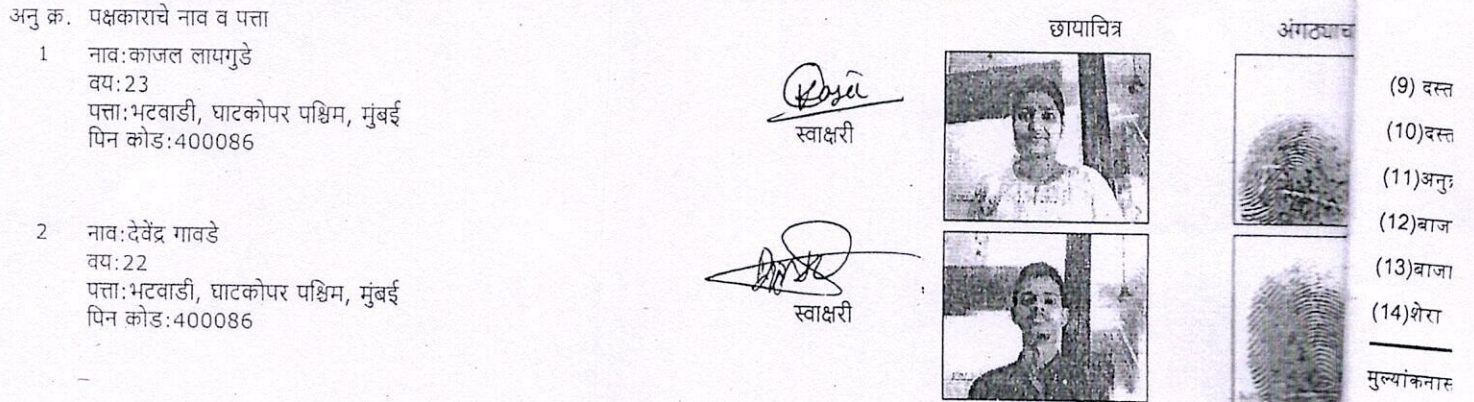 अनु क्र. पक्षकाराचे नाव व पत्ता
छायाचित्र
1 नाव:काजल लायगुडे
वय:23
पत्ता:भटवाडी, घाटकोपर पश्चिम, मुंबई
पिन कोड:400086
स्वाक्षरी
2 नाव:देवेंद्र गावडे
वय:22
पत्ता:भटवाडी, घाटकोपर पश्चिम, मुंबई
पिन कोड:400086
स्वाक्षरी
(9) दस्त
(10)दस्त
(11)
(12)बाज
(13)बाजा
(14)शेरा